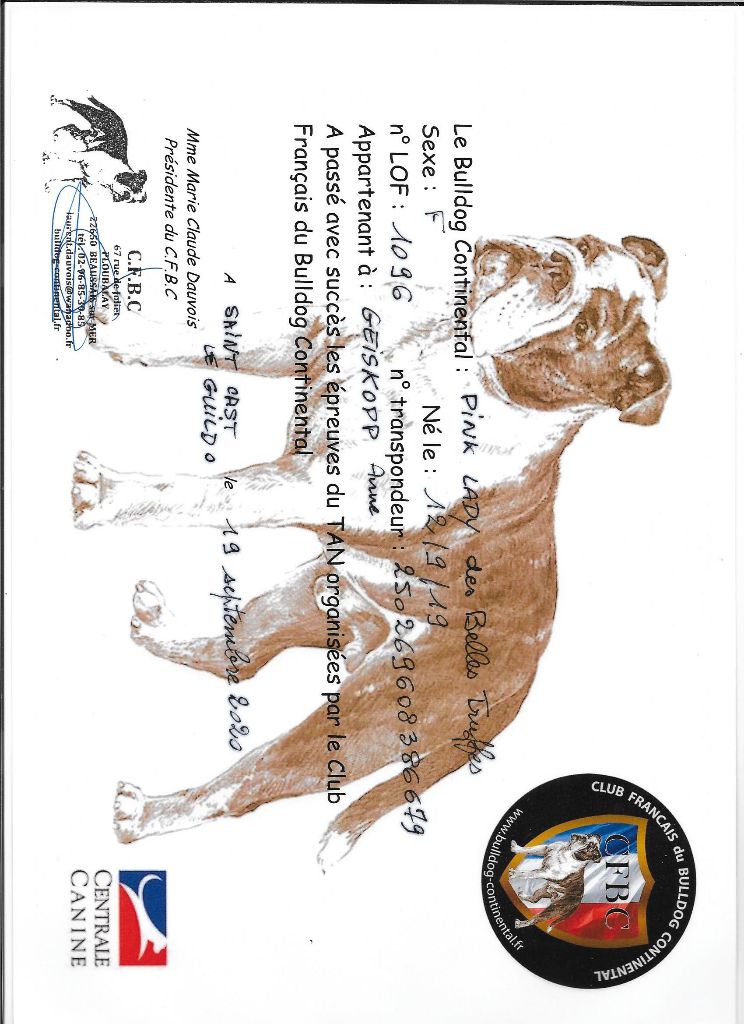 Le Bulldog Continental : PINK LADY des Belles Truffes
Sexe : F Né le : 12/9/19
n° LOF : 1096 n° transpondeur : 250269608386679
Appartenant à : GEISKOPP Anne
A passé avec succès les épreuves du TAN organisées par le Club
Français du Bulldog Continental
A SAINT CAST le 19 septembre 2020
LE GUILDO
Mme Marie Claude Dauvois
Présidente du C.F.B.C
C.F.B.C
67 rue de
PLOUBALAY
22650 BEAUSSAIS sur MER
tél. 02-96-85-30-85
laurent.dauvois@wanadoo.fr
bulldog-continental.fr
CLUB FRANCAIS du BULLDOG CONTINENTAL
CFBC
www.bulldog-continental.fr
CENTRALE
CANINE